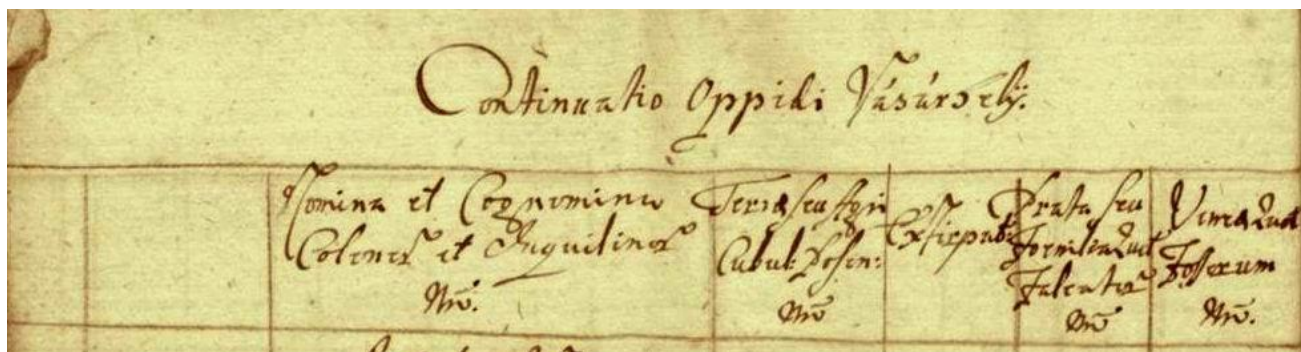 Continuatio Oppidi Vásárhely.
Nomina et Cognomina
Colonor et Inquilinor
Nro.
Terræ seu Agri
Cubul: Poson:
Nro
Exstirpat:
Prata seu
Foenilia Quot
Falcator
Nro
Vineæ Quot
Fosorum
Nro.